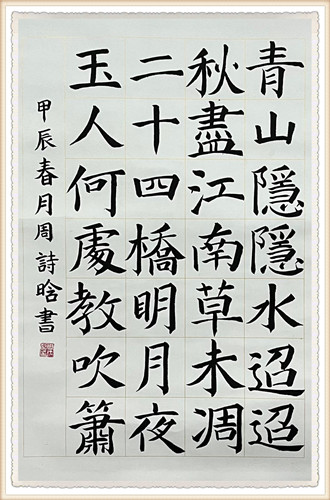 青山隱隱水迢迢
秋盡江南草未凋
二十四橋明月夜
玉人何處教吹簫
甲辰春月周詩晗書